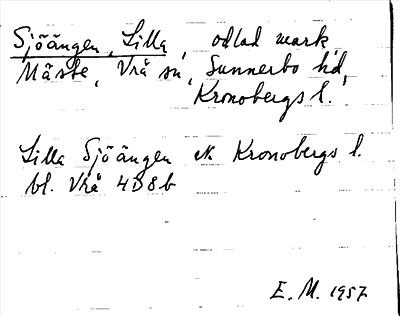 Sjöängen, Lilla, odlad mark,
Måste, Vrå sn, Sunnerbo hd,
Kronobergs l.
Lilla Sjöängen ek Kronobergs l.
bl. Vrå 4D8b
E. M. 1957